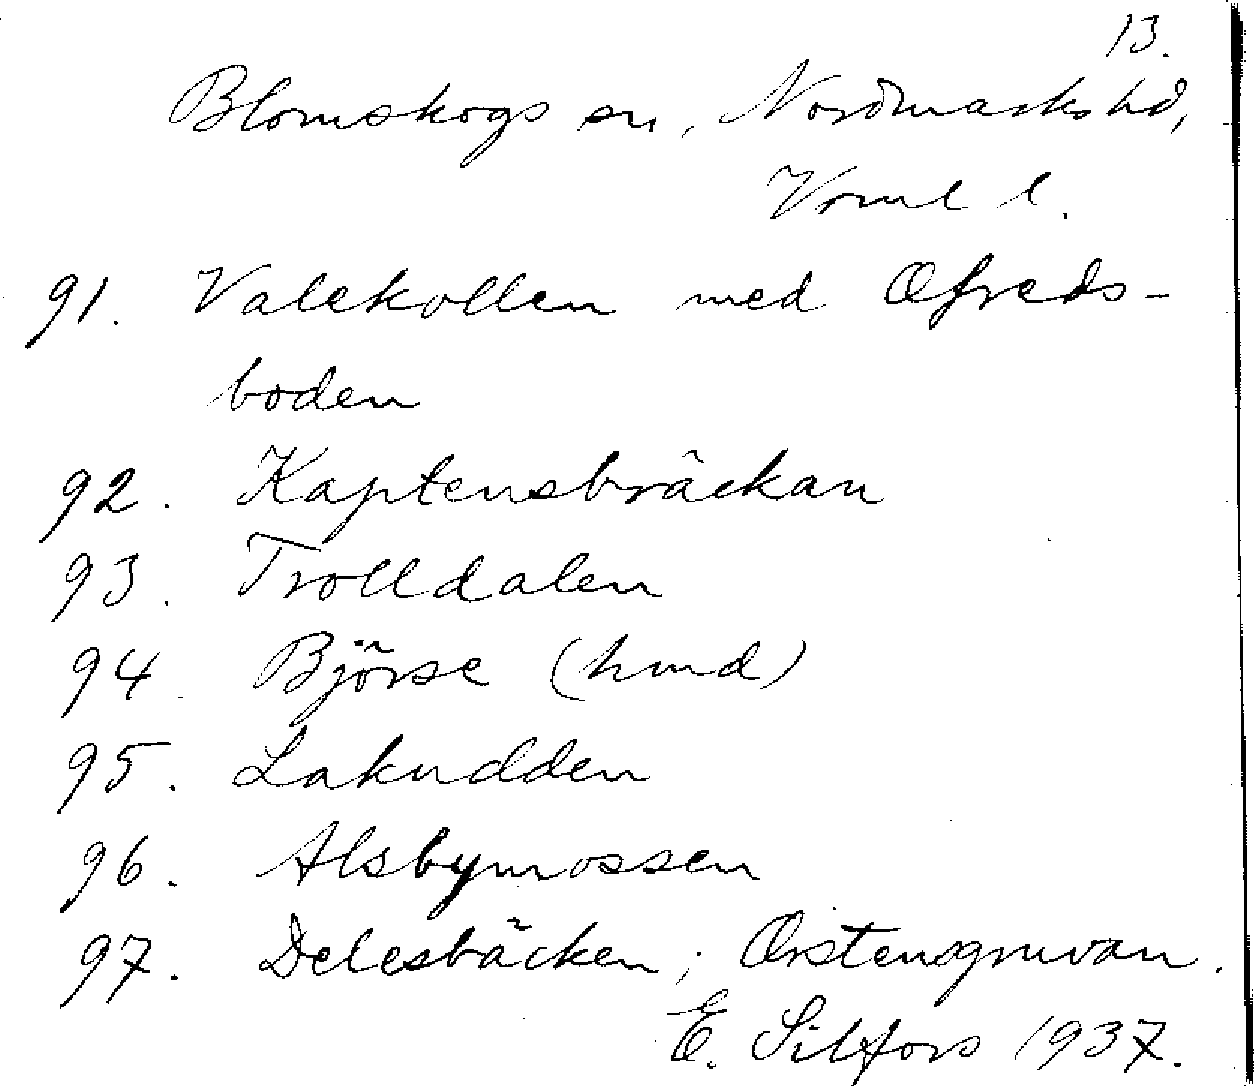 13.
Blomskogs sn, Nordmarks hd,
Vrml l.
91. Valekollen med Œfreds-
boden
92. Kaptensbräckan
93. Trolldalen
94. Björse (hmd)
95. Lakudden
96. Alsbymossen
97. Delesbäcken; Œrstensgruvan.
E. Silfors 1937.